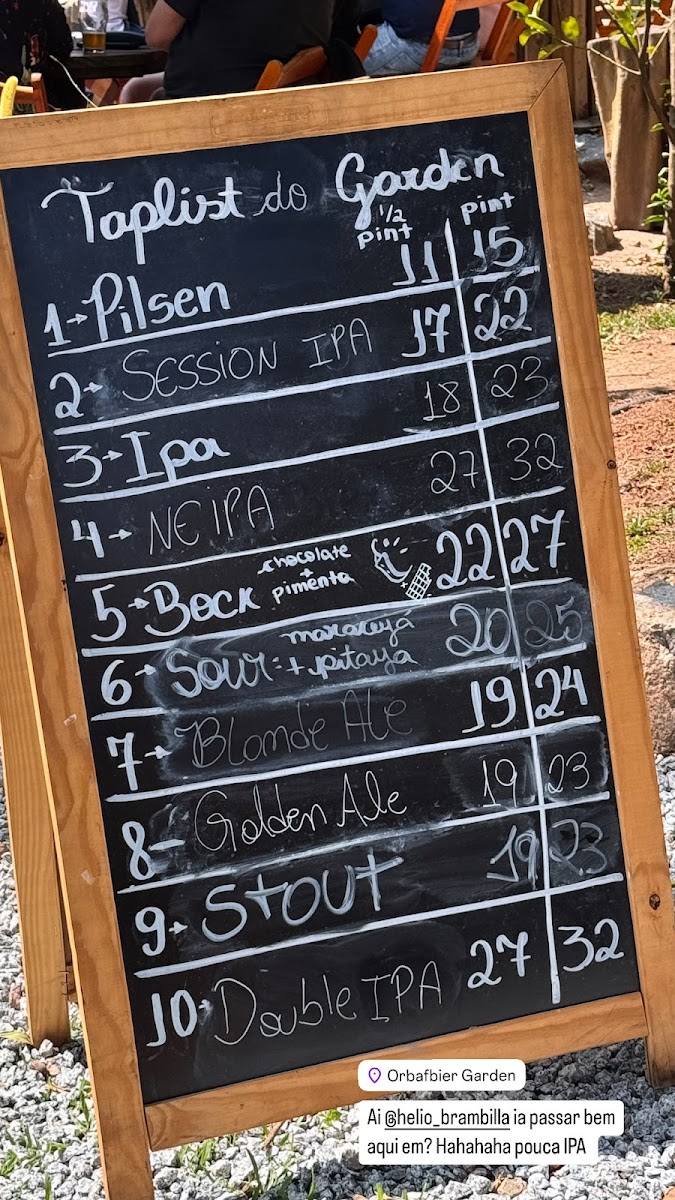 Taplist do Garden
1/2 pint pint
1→Pilsen 11 15
2→ SESSION IPA 17 22
3→Ipa 18 23
4→ NEIPA 27 32
5→Bock chocolate + pimenta 22 27
6→ Sour: maracuyá + pitaya 20 25
7→ Blonde Ale 19 24
8- Golden Ale 19 23
9→ STOUT 19 23
10→Double IPA 27 32
Orbafbier Garden
Ai @helio_brambilla ia passar bem
aqui em? Hahahaha pouca IPA